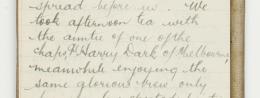 spread before us. We
took afternoon tea with
the auntie of one of the
chaps, H. Harry Dark of Melbourne,
meanwhile enjoying the
same glorious view only